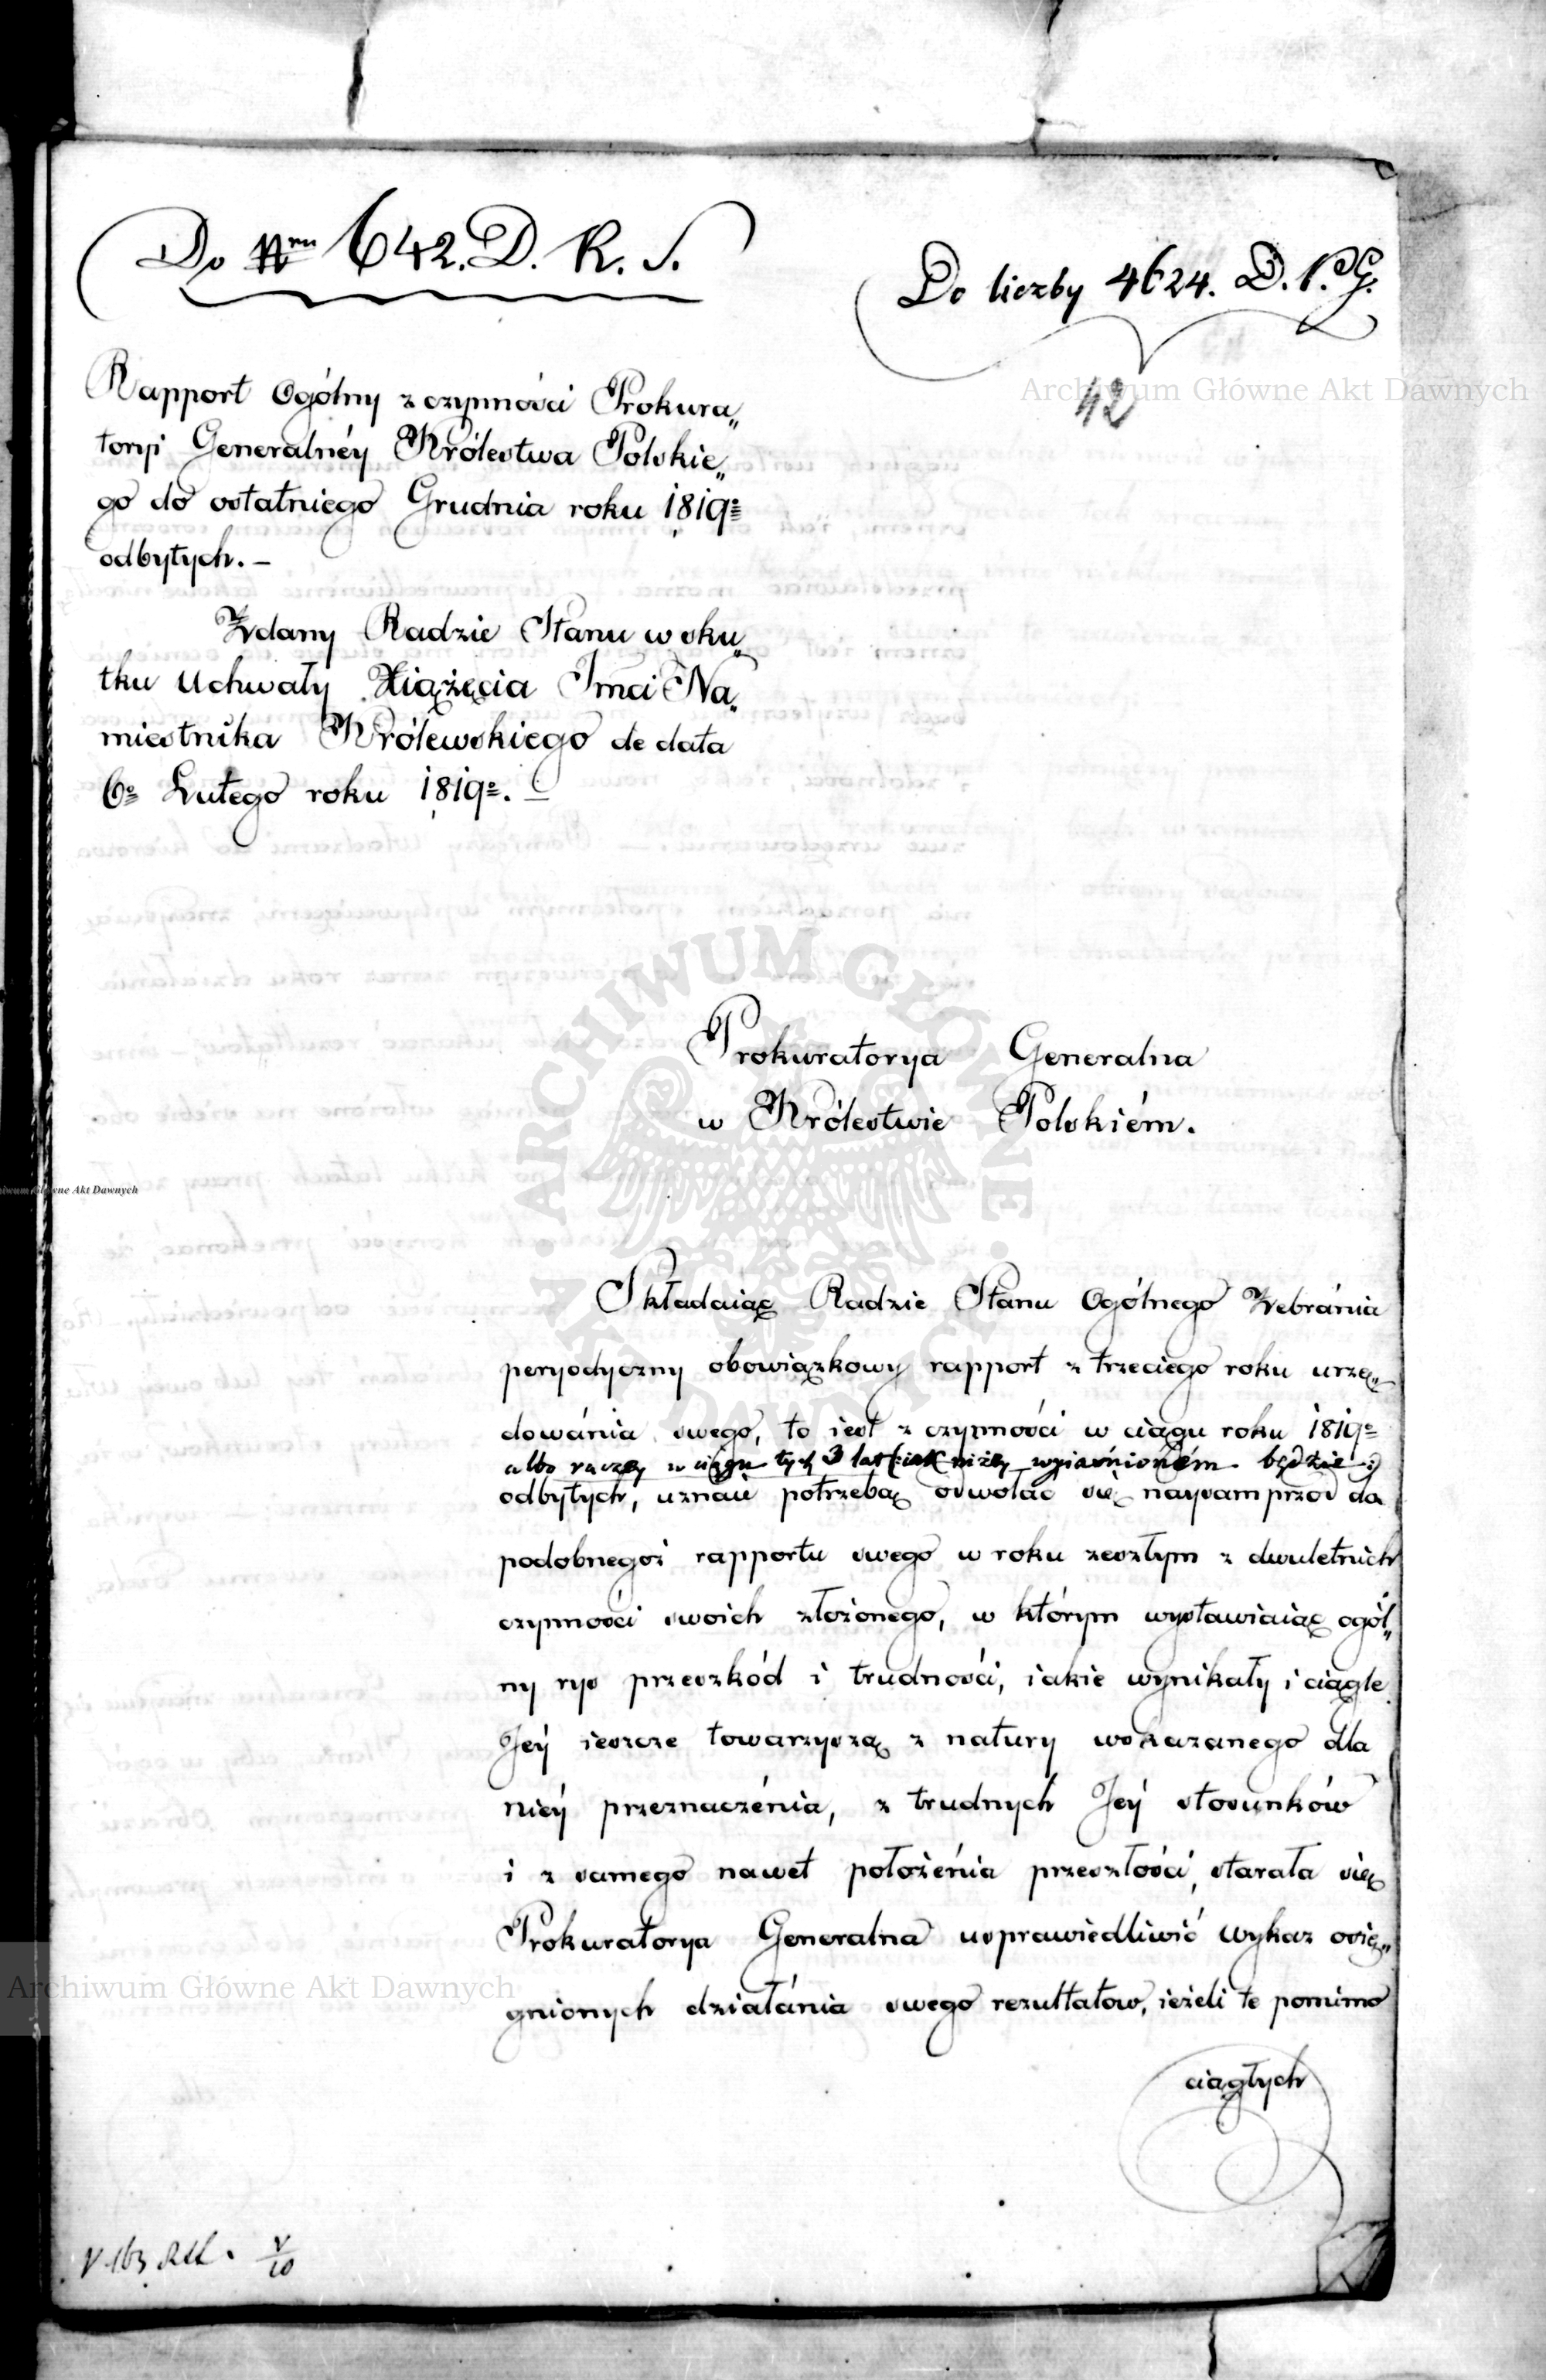 Do Nru 642. D. R. S.
Do liczby 4624. D. P. G.
42
Rapport Ogólny z czynności Prokura„
toryi Generalnéy Królestwa Polskie„
go do ostatniego Grudnia roku 1819o
odbytych. –
Zdany Radzie Stanu w sku„
tku Uchwały Xiążęcia Jmci Na„
miestnika Królewskiego de data
6o Lutego roku 1819o. –
Prokuratorya Generalna
w Królestwie Polskiém.
Składaiąc Radzie Stanu Ogólnego Zebránia
peryodyczny obowiązkowy rapport z trzeciego roku urzę„
dowánia swego, to iest z czynności w ciągu roku 1819o
albo raczey w ciągu tych 3 lat (:iak niżéy wyiaśnioném będzie:)
odbytych, uznaie potrzebę odwołać się naysamprzód do
podobnegoż rapportu swego w roku zeszłym z dwuletnich
czynności swoich złożonego, w którym wystawiaiąc ogól„
ny rys przeszkód i trudności, iakie wynikały i ciągle
Jéy ieszcze towarzyszą z natury wskazanego dla
niéy przeznaczénia, z trudnych Jéy stosunków
i z samego nawet położénia przeszłości, starała się
Prokuratorya Generalna usprawiedliwić wykaz osię„
gnionych działánia swego rezultatow, ieżeli te pomimo
ciągłych
Archiwum Główne Akt Dawnych
Archiwum Główne Akt Dawnych
ARCHIWUM GŁÓWNE AKT DAWNYCH